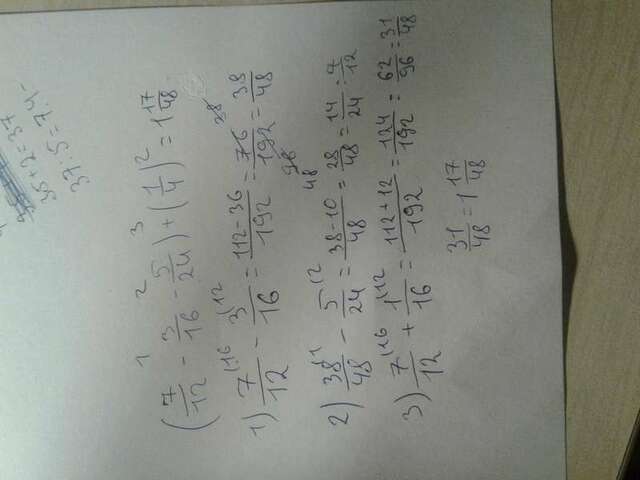 35+2=37
37:5=7.4-
(7/12 - 3/16 - 5/24) + (1/4)² = 1 17/48
1) 7/12 - 3/16 = 112-36/192 = 76/192 = 38/48
2) 38/48 - 5/24 = 38-10/48 = 28/48 = 14/24 = 7/12
3) 7/12 + 1/16 = 112+12/192 = 124/192 = 62/96 = 31/48
31/48 = 1 17/48